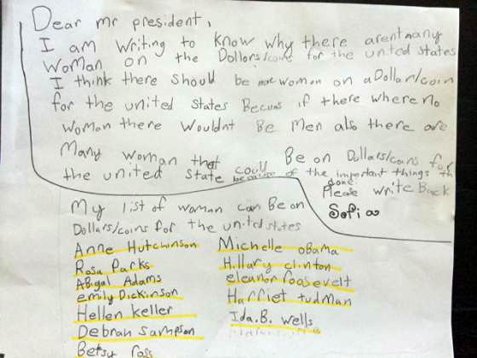 Dear mr president,
I am writing to know why there arent many
Woman on the Dollors/coins for the united states
I think there Should be more women on a Dollar/coin
for the united States Becuas if there where no
Woman there Wouldnt Be Men also there are
Many woman that could Be on Dollars/coins for
the united State because of the important things the
done
Please write Back
Sofia
My list of woman can Be on
Dollars/coins for the united states
Anne Hutchinson
Rosa Parks
Abigal Adams
emily Dickinson
Hellen Keller
Debrah Sampson
Betsy Ross
Michelle obama
Hillary clinton
eleanor roosevelt
Harriet tudman
Ida.B. wells